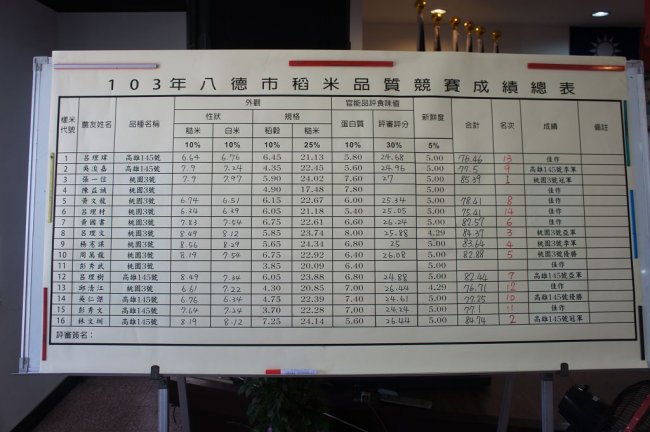 103年八德市稻米品質競賽成績總表
樣米代號 農友姓名 品種名稱 外觀 官能品評食味值 新鮮度 合計 名次 成績 備註
性狀 規格 蛋白質 評審評分
糙米 白米 稻穀 糙米
10% 10% 10% 25% 10% 30% 5%
1 呂理瑋 高雄145號 6.64 6.76 6.45 21.13 5.80 24.68 5.00 76.46 13 佳作
2 高雄145號 7.9 7.24 4.35 22.45 5.60 24.96 5.00 77.5 9 高雄145號季軍
3 張一信 桃園3號 7.9 7.97 5.90 24.02 7.60 27 5.00 85.39 1 桃園3號冠軍
4 陳益誠 桃園3號 4.90 17.48 7.80 5.00 佳作
5 黃文龍 桃園3號 6.74 6.51 6.15 22.67 6.00 25.34 5.00 78.41 8 佳作
6 呂理材 桃園3號 6.34 6.39 6.05 21.18 5.40 25.05 5.00 75.41 14 佳作
7 黃國書 桃園3號 7.83 7.54 6.75 22.61 6.60 26.24 5.00 82.57 6 佳作
8 呂理文 桃園3號 8.49 8.12 5.85 23.74 8.00 25.88 4.29 84.37 3 桃園3號亞軍
9 桃園3號 8.56 8.29 5.65 24.34 6.80 25 5.00 83.64 4 桃園3號季軍
10 周萬龍 桃園3號 8.19 7.54 6.75 22.92 6.40 26.08 5.00 82.88 5 桃園3號優勝
11 彭秀武 桃園3號 3.85 20.09 6.40 5.00 佳作
12 呂理樹 高雄145號 8.49 7.34 6.05 23.88 6.80 24.88 5.00 82.44 7 高雄145號亞軍
13 邱清江 桃園3號 6.61 7.22 4.30 20.85 7.00 26.44 4.29 76.71 12 佳作
14 吳仁傑 高雄145號 6.76 6.34 4.75 22.39 7.40 24.61 5.00 77.25 10 高雄145號優勝
15 彭秀文 高雄145號 7.64 7.24 3.70 22.28 7.00 24.24 5.00 77.1 11 佳作
16 林文圳 高雄145號 8.19 8.12 7.25 24.14 5.60 26.44 5.00 84.74 2 高雄145號冠軍
評審簽名：